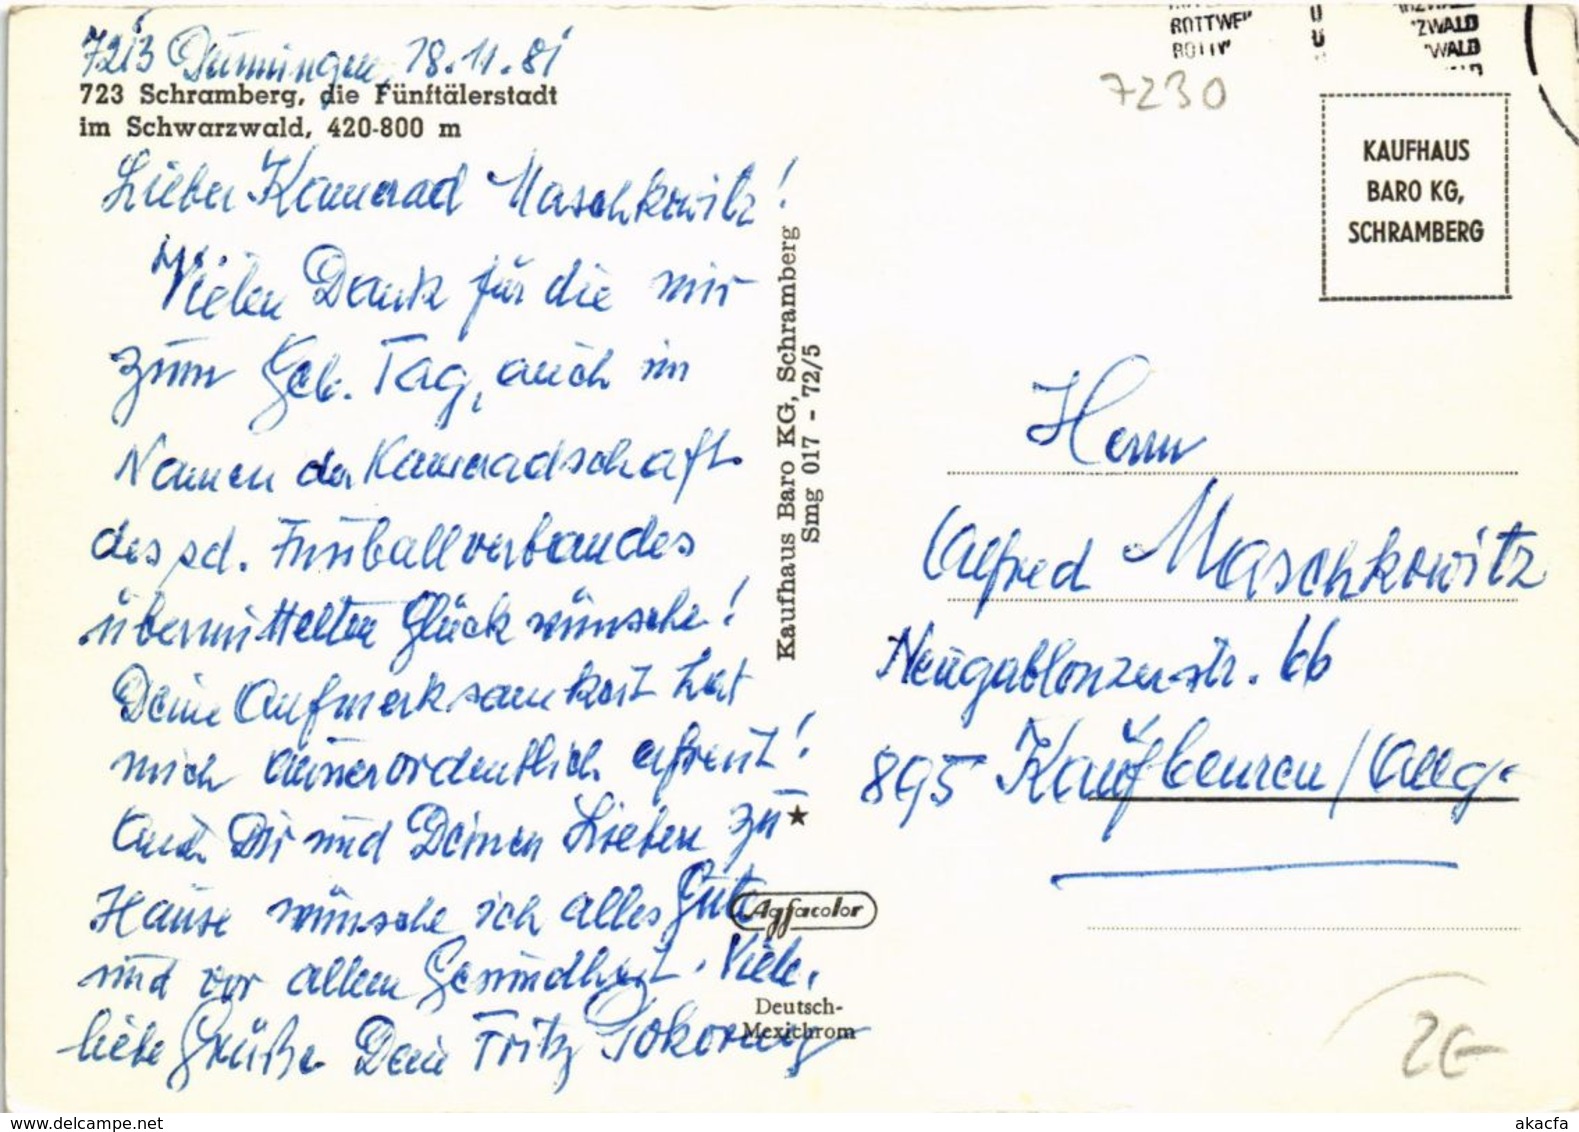 7213 Dunningen, 18.11.81
723 Schramberg, die Fünftälerstadt
im Schwarzwald, 420-800 m
Lieber Kamerad Maschkowitz!
Vielen Dank für die mir
zum Geb. Tag, auch im
Namen der Kameradschaft
des sd. Fussballverbandes
übermittelten Glückwünsche!
Deine Aufmerksamkeit hat
mich ausserordentlich erfreut!
Auch Dir und Deinen Lieben zu
Hause wünsche ich alles Gute
und vor allem Gesundheit. Viele,
liebe Grüße Dein Fritz Pokorny
Kaufhaus Baro KG, Schramberg
Smg 017 - 72/5
★
Agfacolor
Deutsch-
Mexichrom
ROTTWE
ROTTW
ZWALD
WALD
7230
KAUFHAUS
BARO KG,
SCHRAMBERG
Herrn
Alfred Maschkowitz
Neugablonzerstr. 66
895 Kaufbeuren/Allg.
2€
www.delcampe.net
akacfa